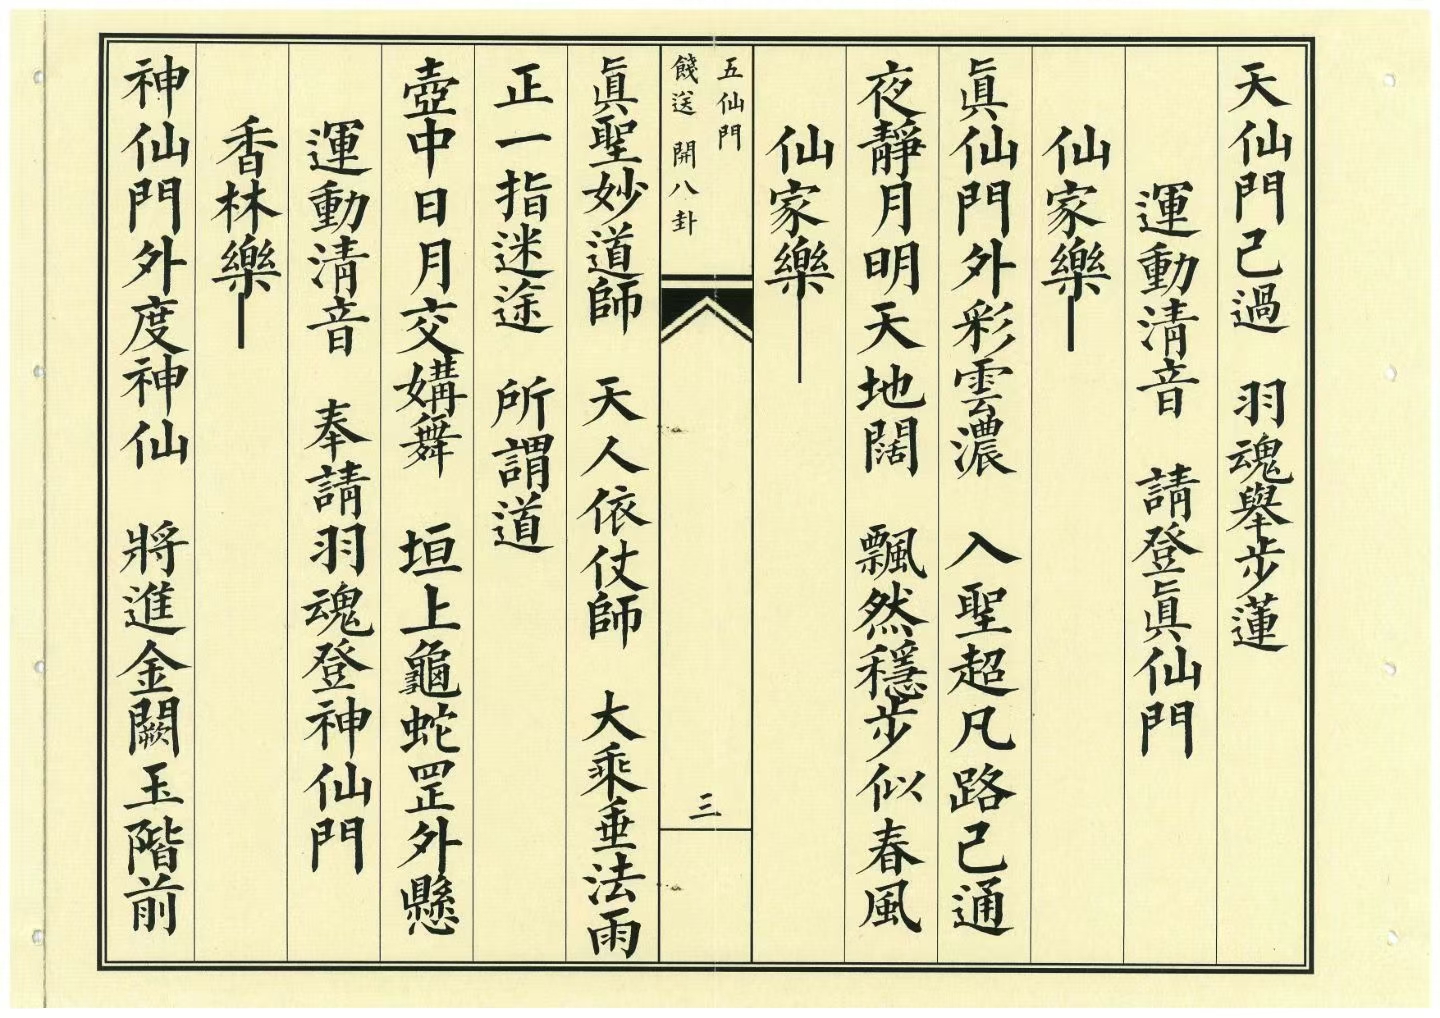 天仙門己過　羽魂舉步蓮
運動清音　請登眞仙門
仙家樂
眞仙門外彩雲濃　入聖超凡路己通
夜靜月明天地闊　飄然穩步似春風
仙家樂
五仙門
餞送　開八卦
三
眞聖妙道師　天人依仗師　大乘垂法雨
正一指迷途　所謂道
壺中日月交媾舞　垣上龜蛇罡外懸
運動清音　奉請羽魂登神仙門
香林樂
神仙門外度神仙　將進金闕玉階前